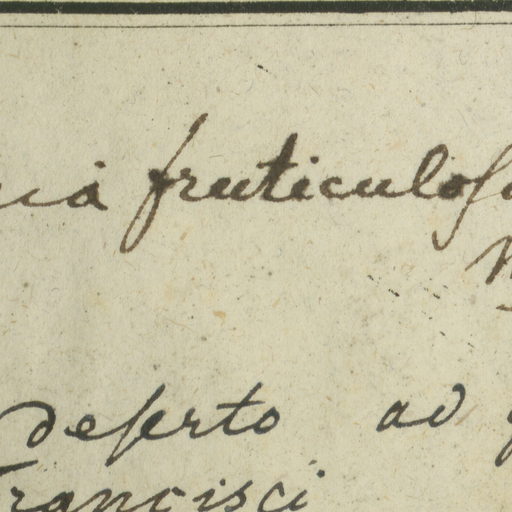 fruticulosa
deserto ad
Francisci